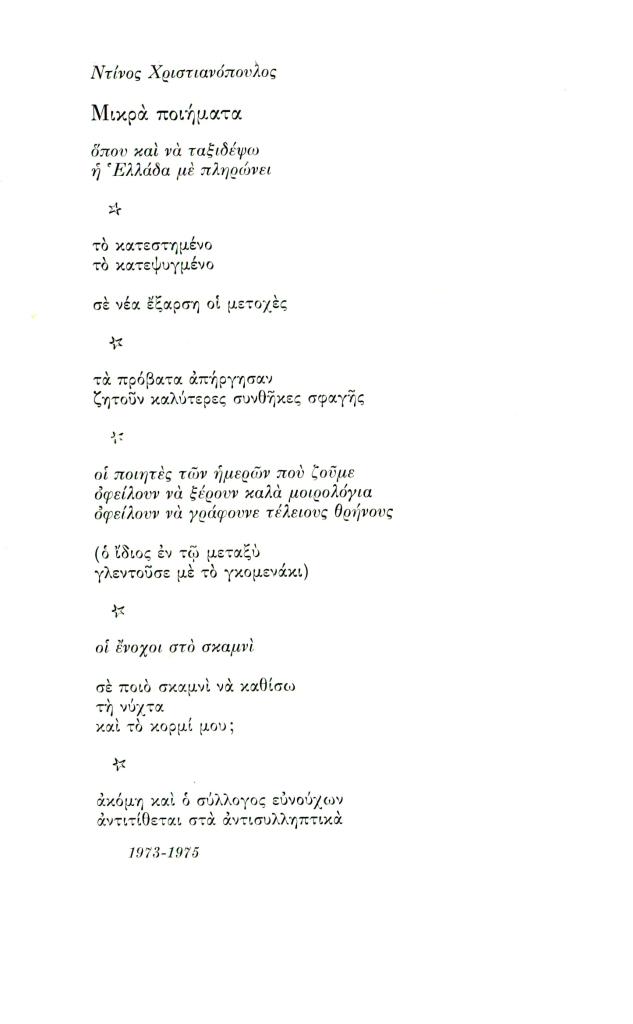 Ντίνος Χριστιανόπουλος
Μικρὰ ποιήματα
ὅπου καὶ νὰ ταξιδέψω
ἡ Ἑλλάδα μὲ πληρώνει
τὸ κατεστημένο
τὸ κατεψυγμένο
σὲ νέα ἔξαρση οἱ μετοχὲς
τὰ πρόβατα ἀπήργησαν
ζητοῦν καλύτερες συνθῆκες σφαγῆς
οἱ ποιητὲς τῶν ἡμερῶν ποὺ ζοῦμε
ὀφείλουν νὰ ξέρουν καλὰ μοιρολόγια
ὀφείλουν νὰ γράφουνε τέλειους θρήνους
(ὁ ἴδιος ἐν τῷ μεταξὺ
γλεντοῦσε μὲ τὸ γκομενάκι)
οἱ ἔνοχοι στὸ σκαμνὶ
σὲ ποιὸ σκαμνὶ νὰ καθίσω
τὴ νύχτα
καὶ τὸ κορμί μου;
ἀκόμη καὶ ὁ σύλλογος εὐνούχων
ἀντιτίθεται στὰ ἀντισυλληπτικὰ
1973-1975